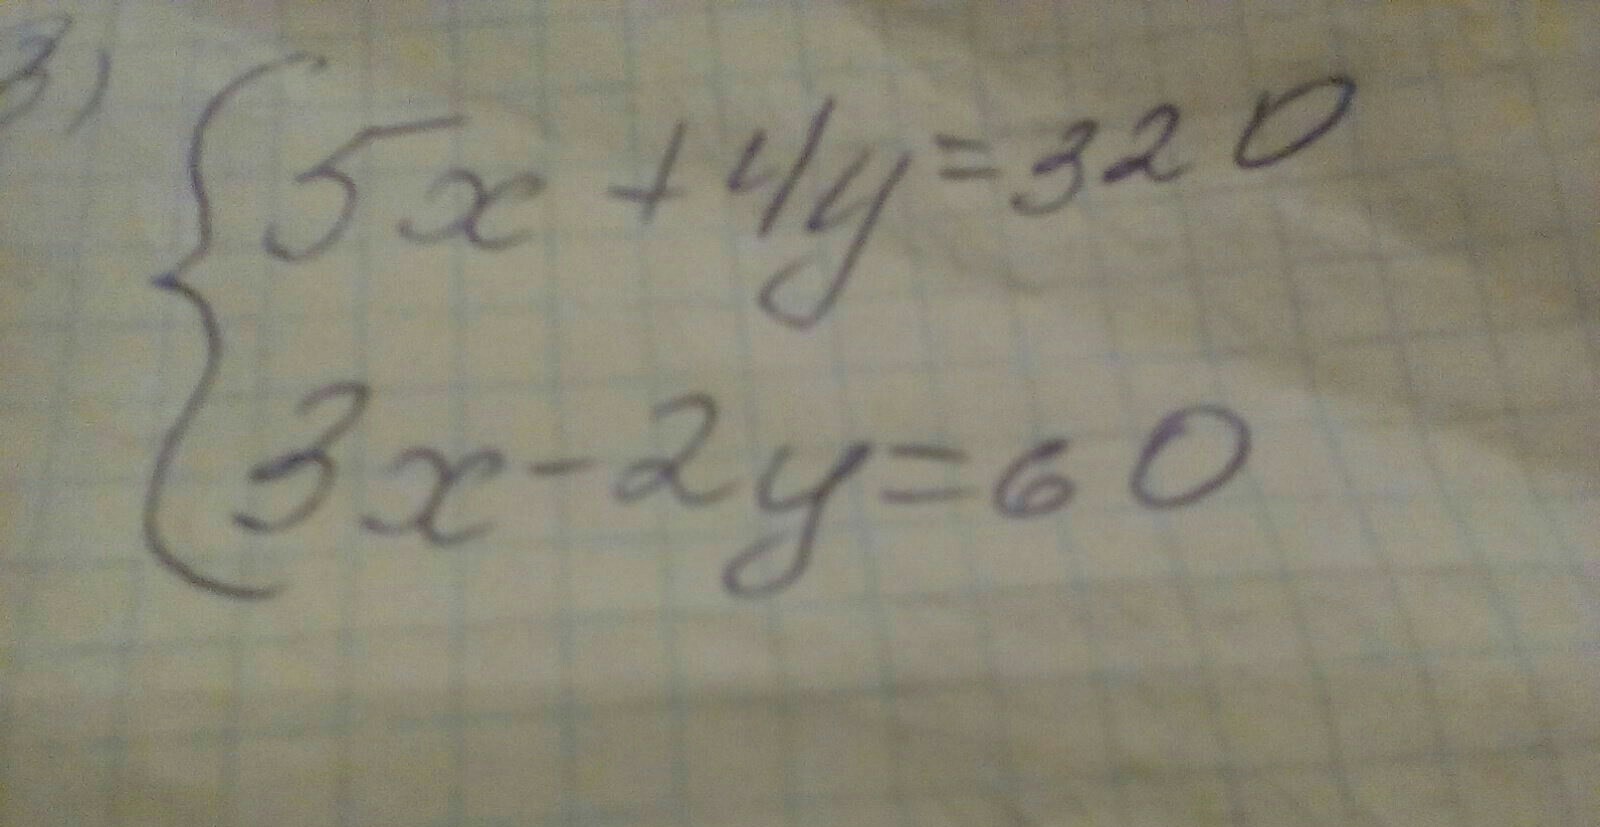 3)
5x+4y=320
3x-2y=60